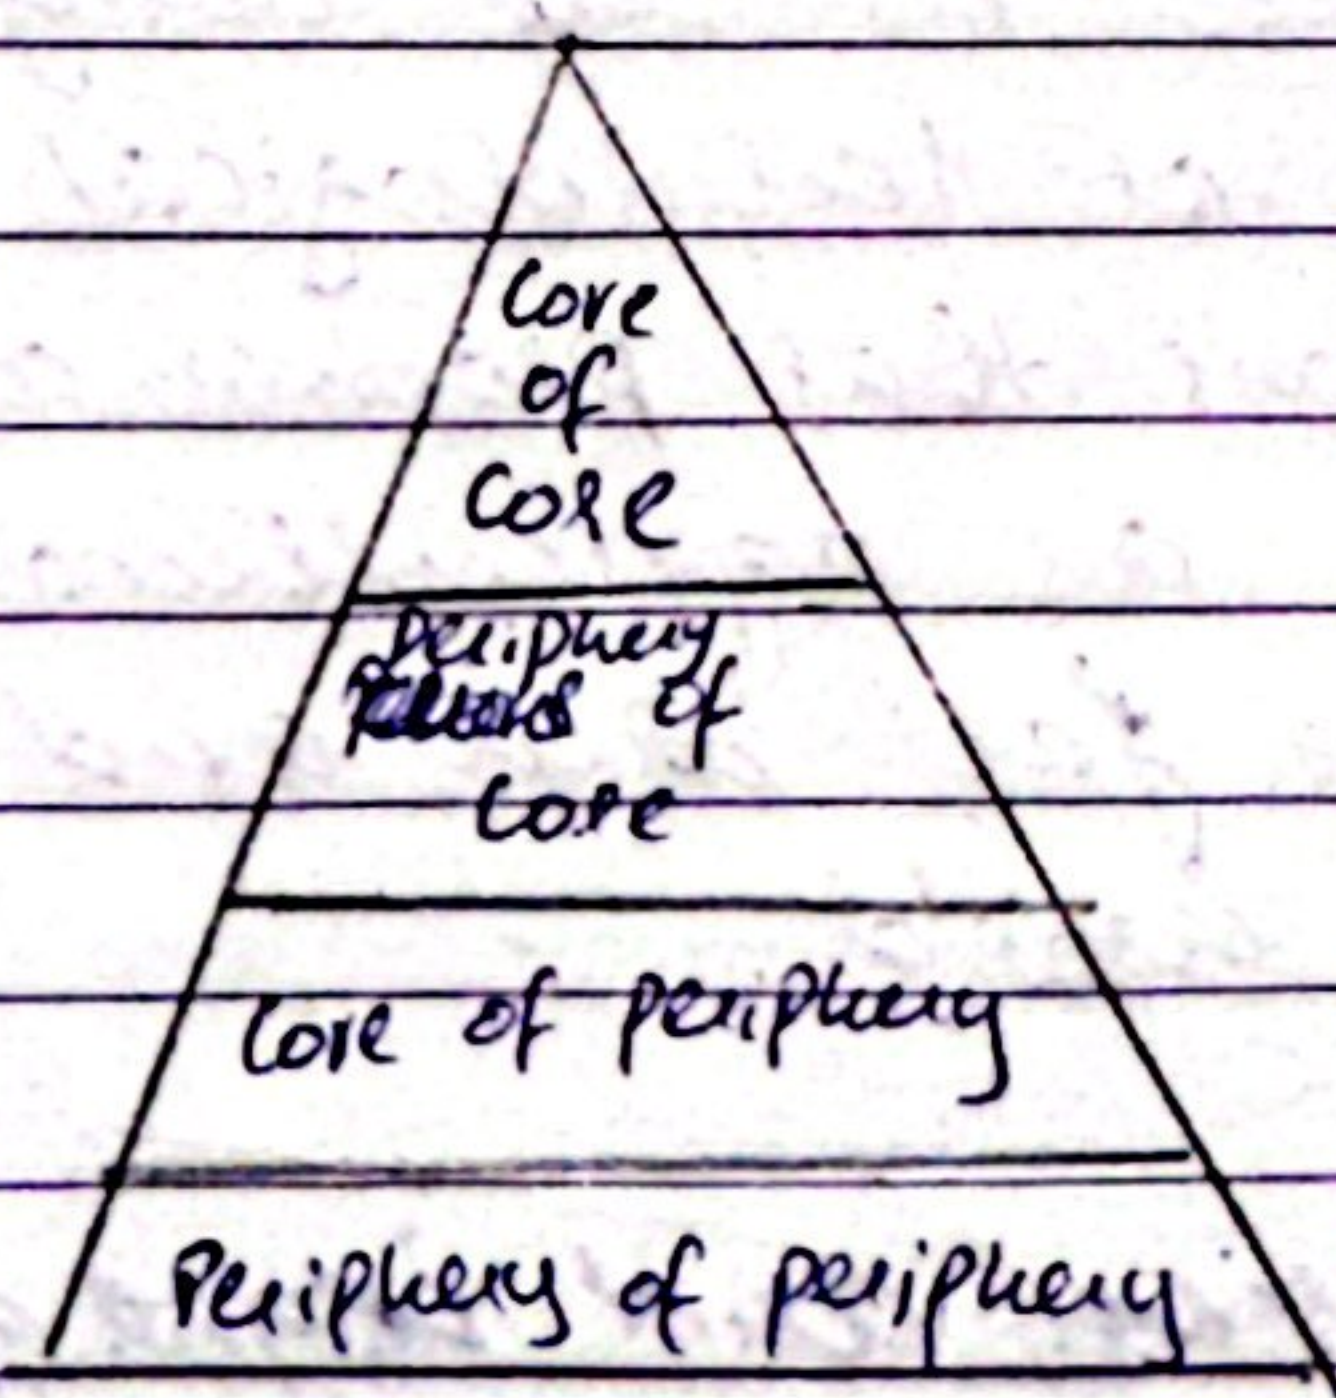 Core
of
Core
Periphery
of
Core
Core of periphery
Periphery of periphery